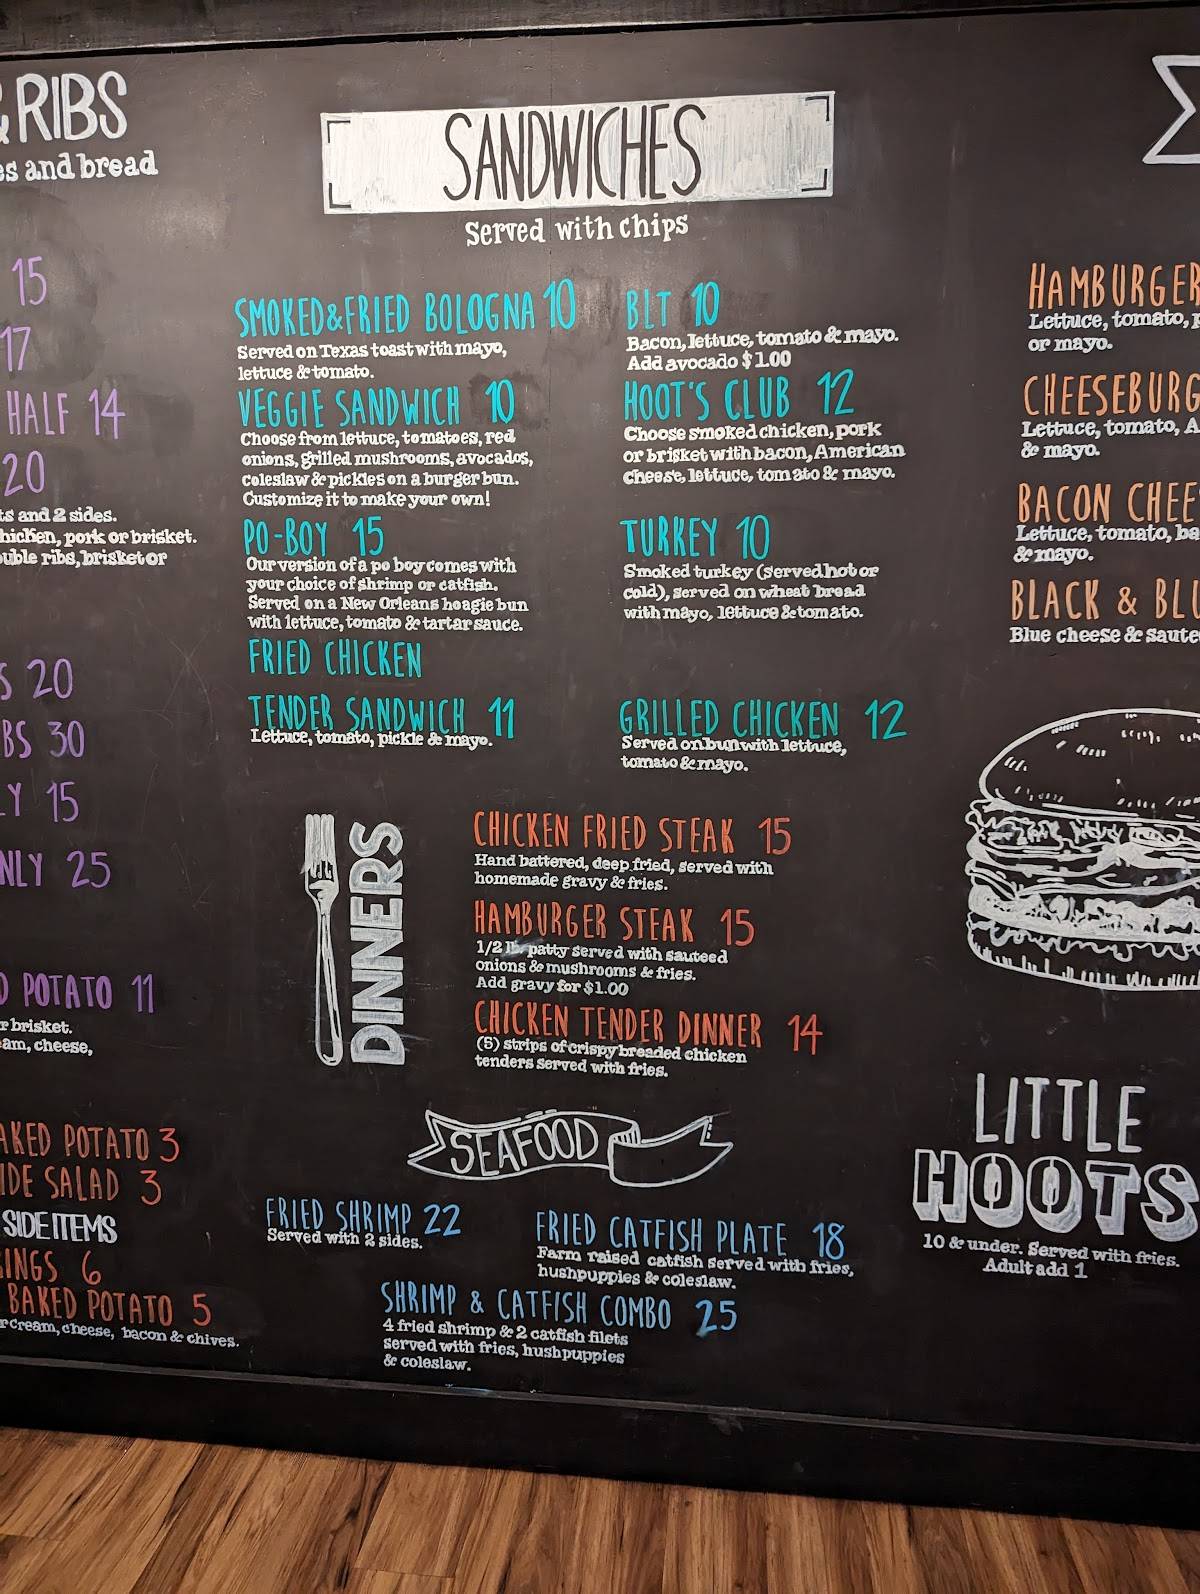 & RIBS
and bread
15
17
HALF 14
20
and 2 sides.
pork or brisket.
ribs, brisket or
20
30
15
25
POTATO 11
brisket.
cheese,
POTATO 3
SALAD 3
SIDE ITEMS
6
BAKED POTATO 5
cream, cheese, bacon & chives.
SANDWICHES
Served with chips
SMOKED & FRIED BOLOGNA 10
Served on Texas toast with mayo,
lettuce & tomato.
VEGGIE SANDWICH 10
Choose from lettuce, tomatoes, red
onions, grilled mushrooms, avocados,
coleslaw & pickles on a burger bun.
Customize it to make your own!
PO-BOY 15
Our version of a po boy comes with
your choice of shrimp or catfish.
Served on a New Orleans hoagie bun
with lettuce, tomato & tartar sauce.
FRIED CHICKEN
TENDER SANDWICH 11
Lettuce, tomato, pickle & mayo.
BLT 10
Bacon, lettuce, tomato & mayo.
Add avocado $1.00
HOOT'S CLUB 12
Choose smoked chicken, pork
or brisket with bacon, American
cheese, lettuce, tomato & mayo.
TURKEY 10
Smoked turkey (served hot or
cold), served on wheat bread
with mayo, lettuce & tomato.
GRILLED CHICKEN 12
Served on bun with lettuce,
tomato & mayo.
DINNERS
CHICKEN FRIED STEAK 15
Hand battered, deep fried, served with
homemade gravy & fries.
HAMBURGER STEAK 15
1/2 lb. patty served with sauteed
onions & mushrooms & fries.
Add gravy for $1.00
CHICKEN TENDER DINNER 14
(5) strips of crispy breaded chicken
tenders served with fries.
SEAFOOD
FRIED SHRIMP 22
Served with 2 sides.
FRIED CATFISH PLATE 18
Farm raised catfish served with fries,
hushpuppies & coleslaw.
SHRIMP & CATFISH COMBO 25
4 fried shrimp & 2 catfish filets
served with fries, hushpuppies
& coleslaw.
HAMBURGER
Lettuce, tomato,
or mayo.
CHEESEBURG
Lettuce, tomato, A
& mayo.
BACON CHEE
Lettuce, tomato, ba
& mayo.
BLACK & BL
Blue cheese & saute
LITTLE
HOOTS
10 & under. Served with fries.
Adult add 1